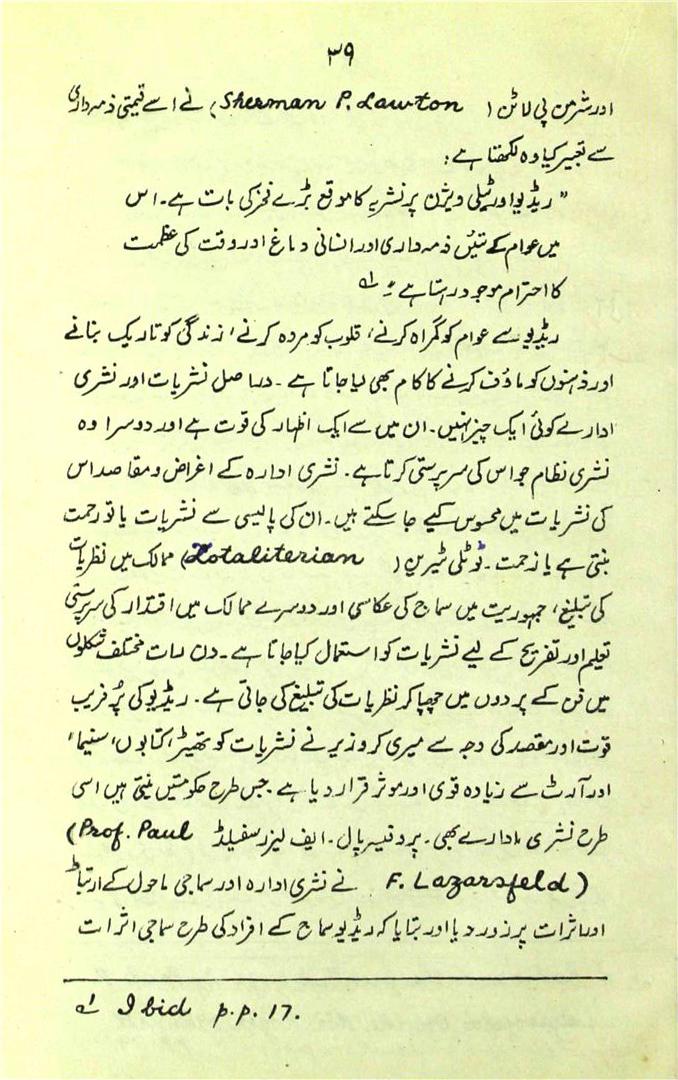 ۳۹
اور شرمن پی لاٹن (Sherman P. Lawton) نے اسے قیمتی ذمہ داری
سے تعبیر کیا وہ لکھتا ہے:
" ریڈیو اور ٹیلی ویژن پر نشریہ کا موقع بڑے فخر کی بات ہے۔ اس
میں عوام کے تئیں ذمہ داری اور انسانی دماغ اور وقت کی عظمت
کا احترام موجود رہتا ہے۔" لے
ریڈیو سے عوام کو گمراہ کرنے، قلوب کو مردہ کرنے، زندگی کو تاریک بنانے
اور ذہنوں کو ماؤف کرنے کا کام بھی لیا جاتا ہے۔ دراصل نشریات اور نشری
ادارے کوئی ایک چیز نہیں۔ ان میں سے ایک اظہار کی قوت ہے اور دوسرا وہ
نشری نظام جو اس کی سرپرستی کرتا ہے۔ نشری ادارہ کے اغراض و مقاصد اس
کی نشریات میں محسوس کیے جا سکتے ہیں۔ ان کی پالیسی سے نشریات یا تو رحمت
بنتی ہے یا زحمت۔ ٹوٹلی ٹیرین (Totaliterian) ممالک میں نظریات
کی تبلیغ، جمہوریت میں سماج کی عکاسی اور دوسرے ممالک میں اقتدار کی سرپرستی
تعلیم اور تفریح کے لیے نشریات کو استعمال کیا جاتا ہے۔ دن رات مختلف شکلوں
میں فن کے پردوں میں چھپا کر نظریات کی تبلیغ کی جاتی ہے۔ ریڈیو کی پُر فریب
قوت اور مقصد کی وجہ سے میری کروزیر نے نشریات کو تھیٹر، کتابوں، سنیما،
اور آرٹ سے زیادہ قوی اور موثر قرار دیا ہے۔ جس طرح حکومتیں بنتی ہیں اسی
طرح نشری ادارے بھی۔ پروفیسر پال۔ ایف لیزرسفیلڈ (Prof. Paul
F. Lazarsfeld) نے نشری ادارہ اور سماجی ماحول کے ارتباط
اور اثرات پر زور دیا اور بتایا کہ ریڈیو سماج کے افراد کی طرح سماجی اثرات
لے Ibid p.p. 17.